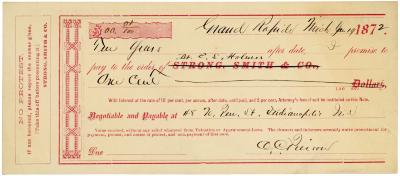 NO PROTEST.
If not honored, please report the express given.
(Take this off before presenting it.)
STRONG, SMITH & CO.
$00.01/100
Grand Rapids Mich Jan 19 1872.
Five Years after date I promise to
Dr. C. L. Holmes
pay to the order of STRONG, SMITH & CO.
One Cent Dollars,
With Interest at the rate of 10 per cent, per annum, after date, until paid, and 5 per cent, Attorney's fees if not be instituted on this Note.
Negotiable and Payable at 48 N. Penn. St. Indianapolis Ind
Value received, without any relief whatever from Valuation or Appraisement Laws. The drawers and indorsers severally waive presentment for
payment, protest, and notice of protest, and non-payment of this note.
Due